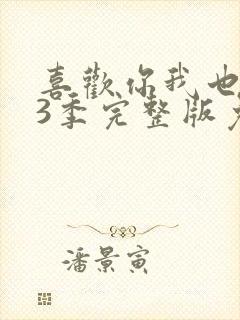 喜歡你我也
3季完整版
潘景寅